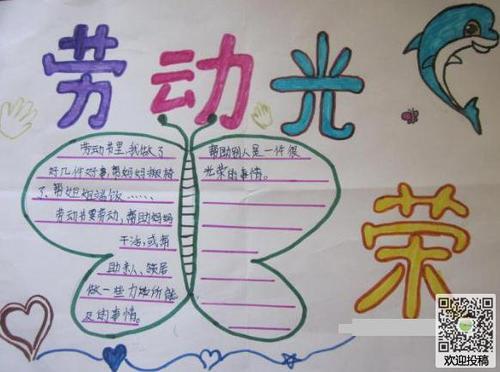 劳动光
荣
劳动节里，我做了
好几件好事，帮妈妈搬椅
了、帮姐姐端饭……
劳动节要劳动，帮助妈妈
干活，或帮
助亲人、邻居
做一些力所能
及的事情。
帮助别人是一件很
光荣的事情。
欢迎投稿